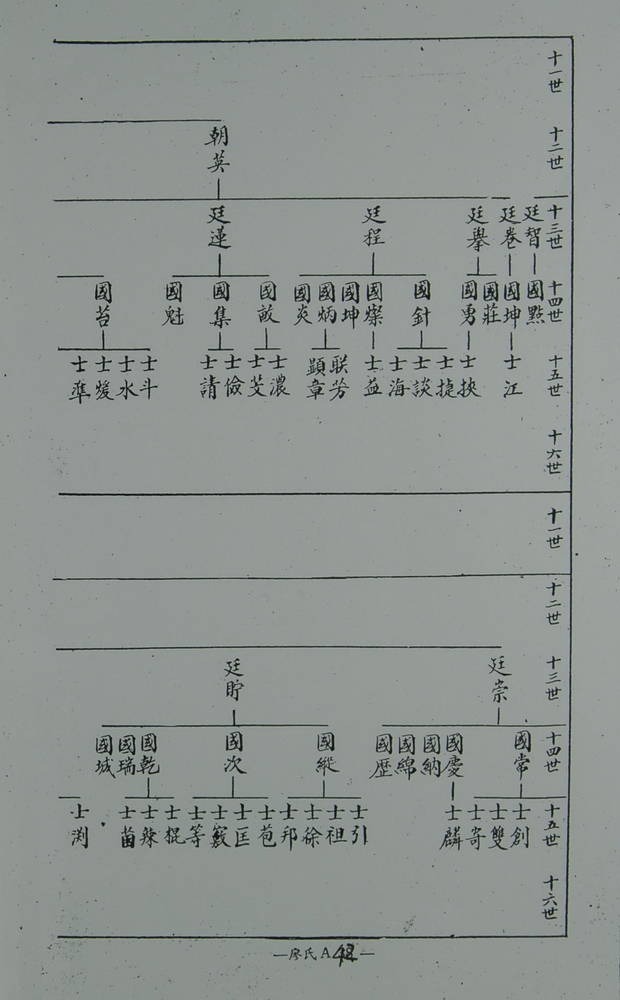 十一世
十二世
十三世
十四世
十五世
十六世
朝英
廷智
廷卷
廷舉
廷程
廷蓮
國㸃
國坤
國莊
國勇
國針
國燦
國坤
國炳
國炎
國敼
國集
國魁
國苔
士江
士挾
士捷
士談
士海
士益
联芳
顕章
士濃
士芠
士儉
士請
士斗
士水
士煖
士準
十一世
十二世
十三世
十四世
十五世
十六世
廷崇
廷貯
國常
國慶
國納
國綿
國歷
國縱
國次
國乾
國瑞
國城
士創
士雙
士寄
士麟
士引
士祖
士徐
士邦
士苞
士匡
士籔
士等
士棍
士辣
士菌
士渕
—廖氏A42—